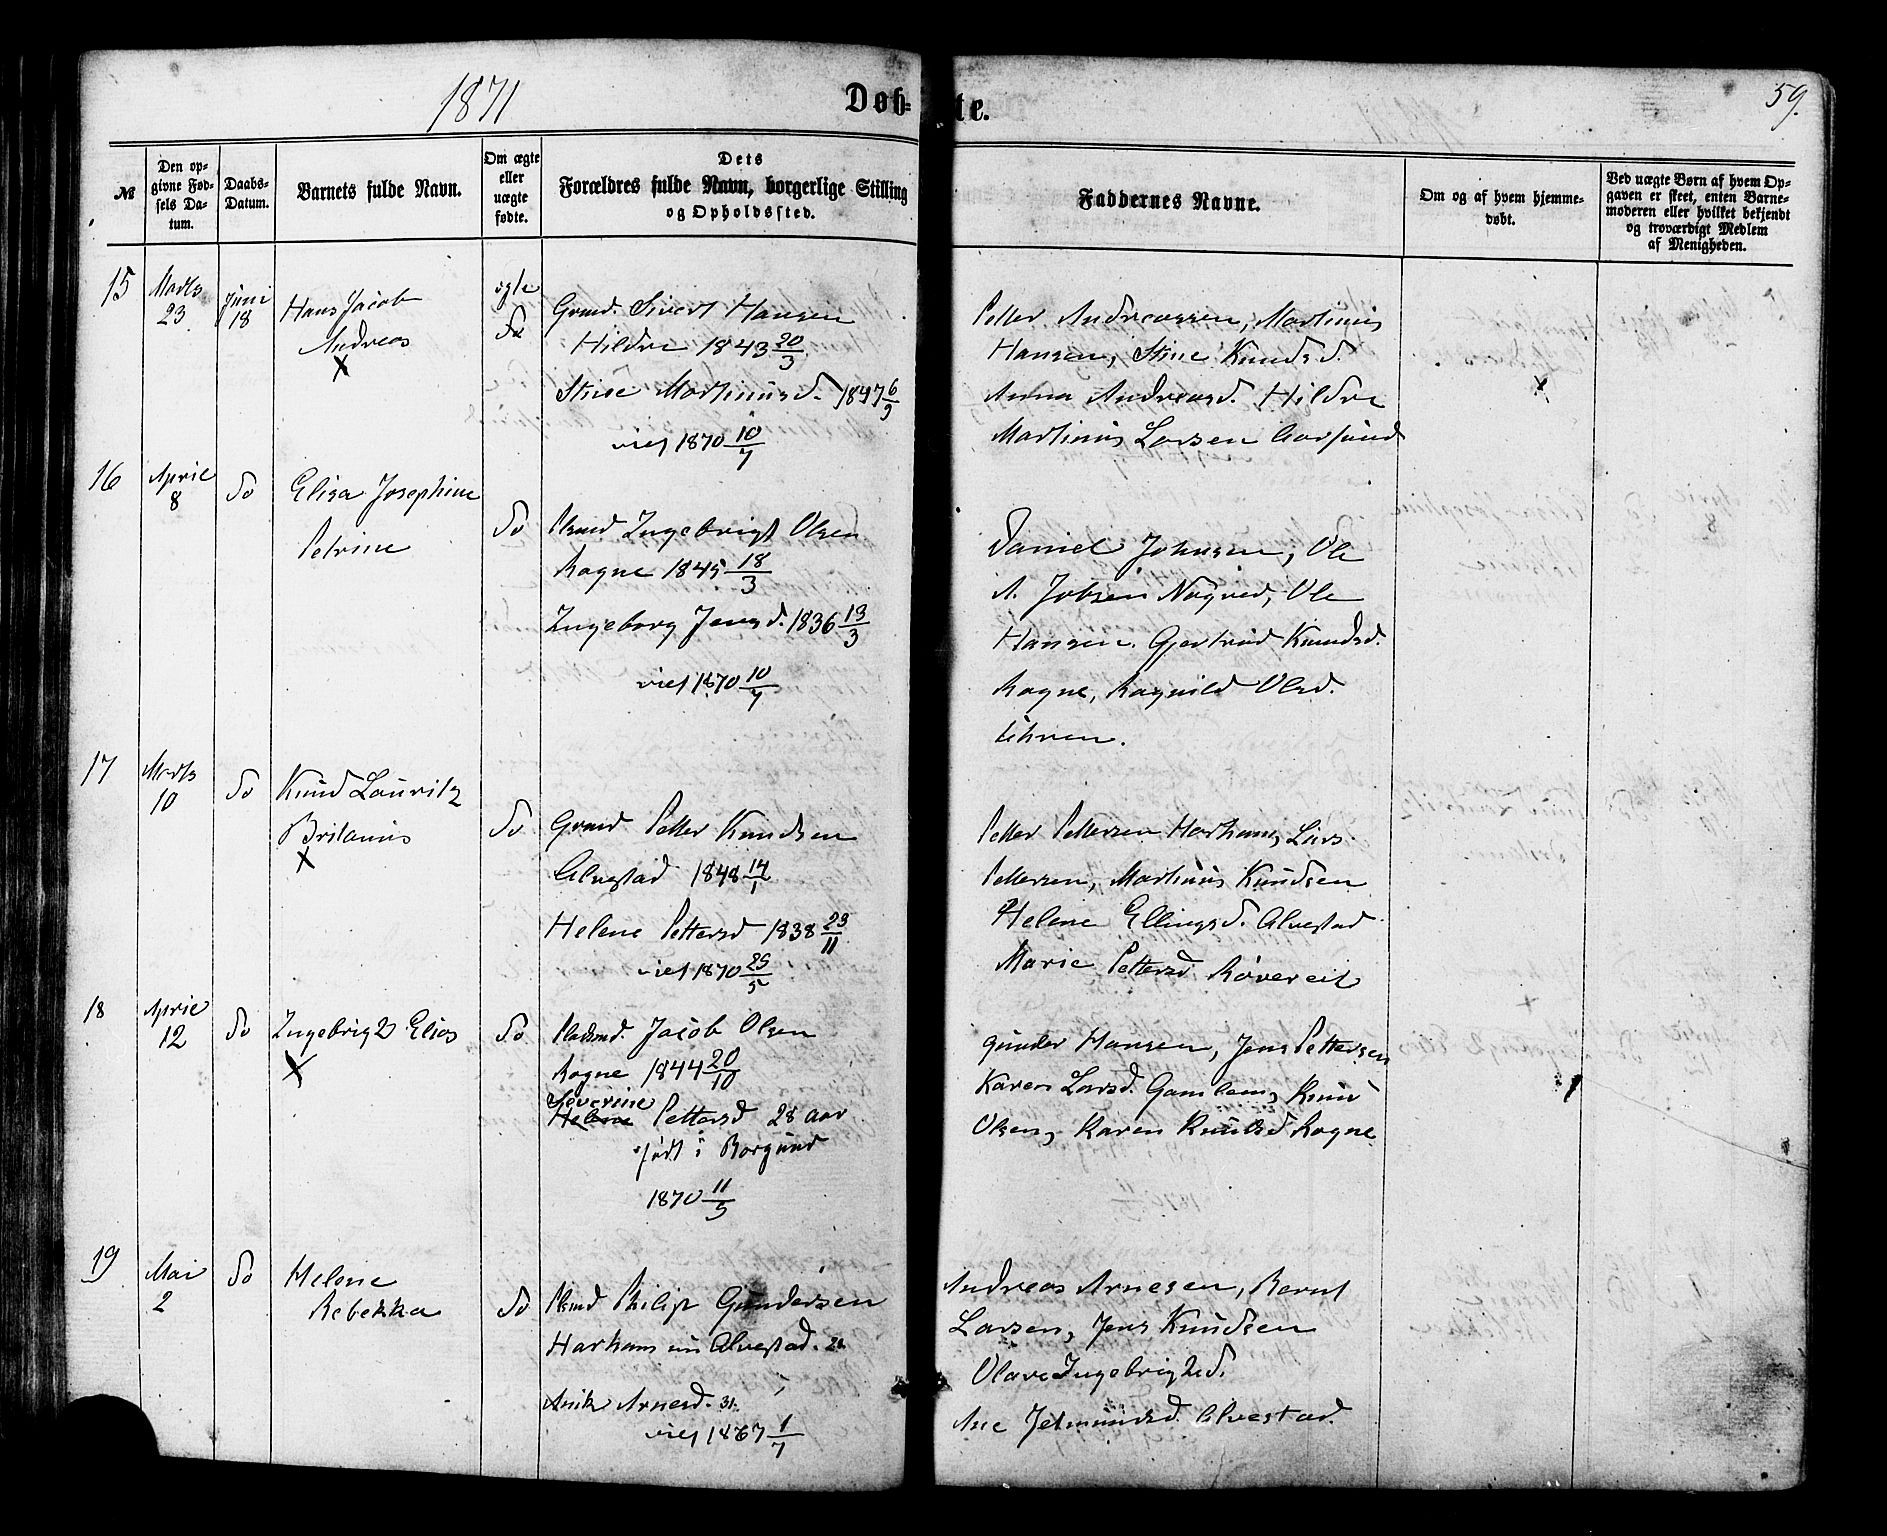 1871
Døb-te.
59.
№
Den op-
givne Fød-
sels Da-
tum.
Daabs-
Datum.
Barnets fulde Navn.
Om ægte
eller
uægte
fødte.
Dets
Forældres fulde Navn, borgerlige Stilling
og Opholdssted.
Faddernes Navne.
Om og af hvem hjemme-
døbt.
Ved uægte Børn af hvem Op-
gaven er skeet, enten Barne-
moderen eller hvilket bekjendt
og troværdigt Medlem
af Menigheden.
15
Marts
23
Juni
18
Hans Jacob
Andreas
X
ægte
Do
Grmd. Sivert Hansen
Hildre 1843 20/3
Stine Martinusd. 1847 6/9
viet 1870 10/7
Petter Andreassen, Martinus
Hansen, Stine Knudsd.
Anna Andreasd. Hildre
Martinus Larsen Aarsund
x
16
April
8
Do
Elisa Josephine
Petrine
Do
Plsmd Ingebrigt Olsen
Rogne 1845 18/3
Ingeborg Jensd. 1836 13/3
viet 1870 10/7
Daniel Johnsen, Ole
A. Jobsen Nogved, Ole
Hansen. Gjertrud Knudsd.
Rogne, Ragnild Olsd.
Uhren.
17
Marts
10
Do
Knud Lauritz
Britanus
X
Do
Grmd Petter Knudsen
Alvestad 1848 14/1
Helene Pettersd 1838 23/11
viet 1870 25/5
Petter Pettersen Harham, Lars
Pettersen, Martinus Knudsen
Helene Ellingsd. Alvestad
Marie Pettersd Røvereit
+
18
April
12
Do
Ingebrigt Elias
X
Do
Pladsmd. Jacob Olsen
Rogne 1844 20/10
Severine
Helene Pettersd 28 aar
født i Borgund
1870 11/5
Gunder Hansen, Jens Pettersen
Karen Larsd. Gamlem, Knud
Olsen, Karen Knudsd Rogne
19
Mai
2
Do
Helene
Rebekka
Do
Plsmd Philip Gundersen
Harham nu Alvestad.
Anik Arnesd. 31.
viet 1867 1/7
Andreas Arnesen, Bernt
Larsen, Jens Knudsen
Olave Ingebrigtsd.
Ane Jetmundsd. Alvestad.